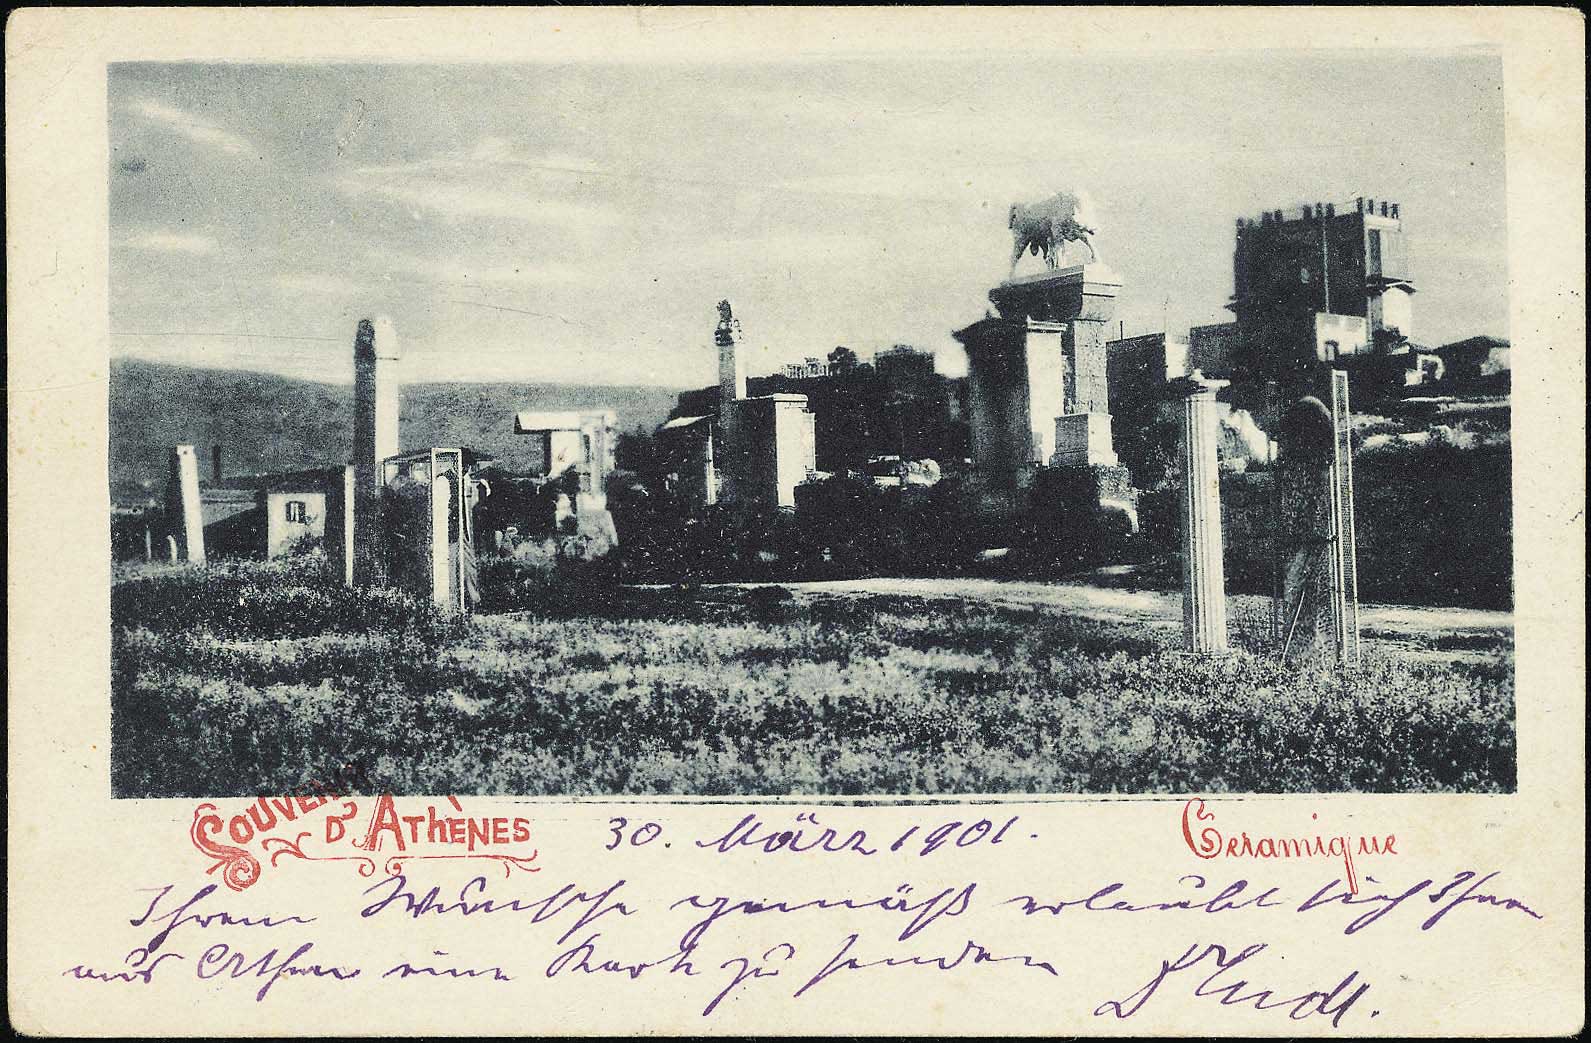 SOUVENIR
D'ATHÈNES
30. März 1901.
Ceramique
Ihrem Wunsche gemäß erlaubt sich Ihnen
aus Athen eine Karte zu senden